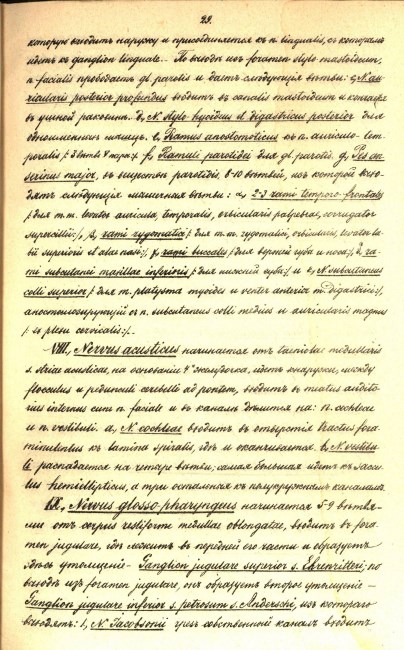 28.
которую входитъ наружу и присоединяется къ n. lingualis, съ которымъ
идетъ къ ganglion linguale. По выходѣ изъ foramen stylo mastoideum,
n. facialis прободаетъ gl. parotis и даетъ слѣдующія вѣтви: c, N. au-
ricularis posterior profundus входитъ въ canalis mastoideum и
въ ушной раковинѣ. d, N. stylo hyoideus et digastricus posterior для
одноименныхъ мышцъ. e, Ramus anostomoticus къ n. auriculo-tem-
poralis f, Ramuli parotidei для gl. parotis. g, Pes an-
serinus major, въ веществѣ parotidis, 8-10 вѣтвей, изъ которой выхо-
дятъ слѣдующія мышечныя вѣтви: α, 2-3 rami temporo-frontales
/: для m.m. levator auricula, temporalis, orbicularis palpebrae, corrugator
supercilii:/, β, rami zygomatici /: для m.m. zygomatici, orbicularis, levator la-
bii superioris et alae nasi:/, γ, rami buccales /: для верхней губы и носа:/, δ, ra-
mi subcutanei maxillae inferioris /: для нижней губы:/ и ε, N. subcutaneus
colli superior /: для m. platysma myoides и venter anterior m. digastrici:/,
анастомозирующій съ n. subcutaneus colli medius и auricularis magnus
/: изъ plexu cervicalis:/.
VIII., Nervus acusticus начинается отъ taeniolae medullaris
s. striae acusticae, на основаніи 4го желудочка, идетъ кнаружи, между
flocculus и pedunculi cerebelli ad pontem, входитъ въ meatus audito-
rius internus cum n. faciale и въ каналѣ дѣлится на: n. cochleae
и n. vestibuli. a, N. cochleae входитъ въ отверстіе tractus fora-
minulentus къ lamina spiralis, гдѣ и оканчивается. b, N. vestibu-
li распадается на четыре вѣтви; самая большая идетъ къ saccu-
lus hemiellipticus, а три остальныя къ полукружнымъ каналамъ.
IX., Nervus glosso-pharyngeus начинается 5-9 вѣтвя-
ми отъ corpus restiforme medullae oblongatae, входитъ въ fora-
men jugulare, гдѣ лежитъ въ передней его части и образуетъ
здѣсь утолщеніе - Ganglion jugulare superior s. Ehrenritteri; по
выходѣ изъ foramen jugulare, онъ образуетъ второе утолщеніе -
Ganglion jugulare inferior s. petrosum s. Anderschi, изъ котораго
выходятъ: 1, N. Jacobsonii чрезъ собственный каналъ входитъ